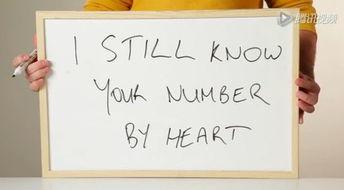 腾讯视频
I STILL KNOW
YOUR NUMBER
BY HEART